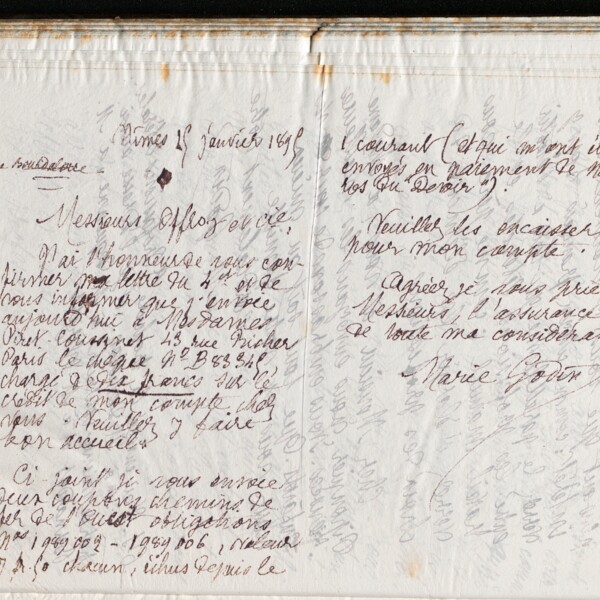 Nîmes 25 janvier 1895
Bourdaloue
Messieurs Offroy et Cie,
J'ai l'honneur de vous con-
firmer ma lettre du 4 et de
vous informer que j'envoie
aujourd'hui à Mesdames
43 rue Richer
Paris le chèque No B 8334
chargé de dix francs sur le
crédit de mon compte chez
vous. Veuillez y faire
bon accueil.
Ci-joint je vous envoie
deux coupons chemins de
fer de l'Ouest obligations
Nos 1989009 - 1989006, valeur
7 f. 50 chacun, échus depuis le
1 courant (et qui m'ont é
envoyés en paiement de
ros du "Devoir").
Veuillez les encaisser
pour mon compte.
Agréez, je vous prie
Messieurs, l'assurance
de toute ma considéra
Marie Godin